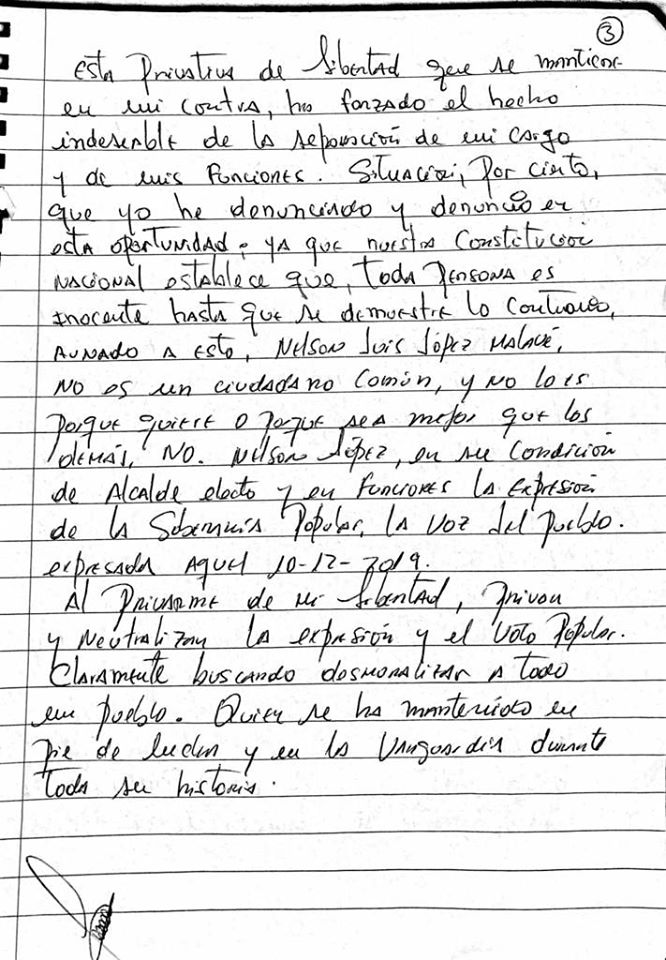 3
Esta Privativa de libertad que se mantiene
en mi contra, ha forzado el hecho
indeseable de la separación de mi cargo
y de mis Funciones. Situación, Por cierto,
que yo he denunciado y denuncio en
esta oportunidad, ya que nuestra Constitución
Nacional establece que, toda Persona es
inocente hasta que se demuestre lo contrario,
Aunado a esto, Nelson Luis López Malavé,
No es un ciudadano común, y No lo es
porque quiere o porque sea mejor que los
demás, No. Nelson López, en su condición
de Alcalde electo y en Funciones la Expresión
de la Soberanía Popular, la Voz del Pueblo.
expresada Aquel 10-12-2019.
Al Privarme de mi libertad, Privan
y Neutralizan la expresión y el Voto Popular.
Claramente buscando desmoralizar a todo
un Pueblo. Quien se ha mantenido en
pie de lucha y en la Vanguardia durante
toda su historia.